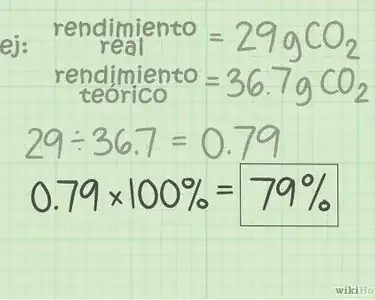 ej: rendimiento real = 29g CO₂
rendimiento teórico = 36.7g CO₂
29 ÷ 36.7 = 0.79
0.79 × 100% = 79%
wikiHo